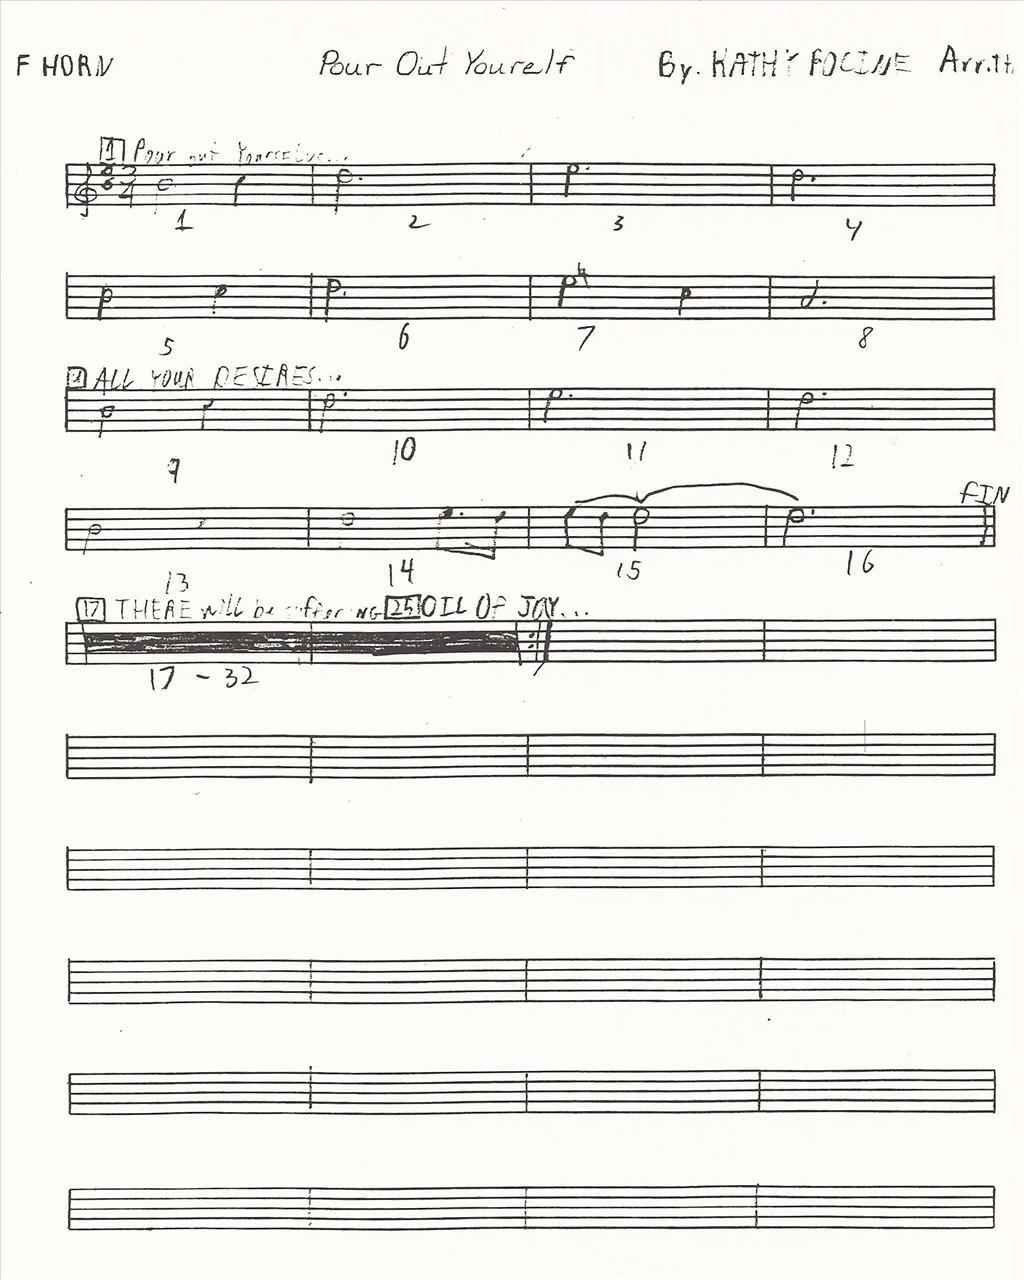 F HORN Pour Out Yourelf By. KATHY FOCINE Arr.
1 Pour out
1 2 3 4
5 6 7 8
9 ALL YOUR DESIRES...
9 10 11 12
FIN
13 14 15 16
17 THERE will be suffering 25 OIL OF JOY...
17 - 32